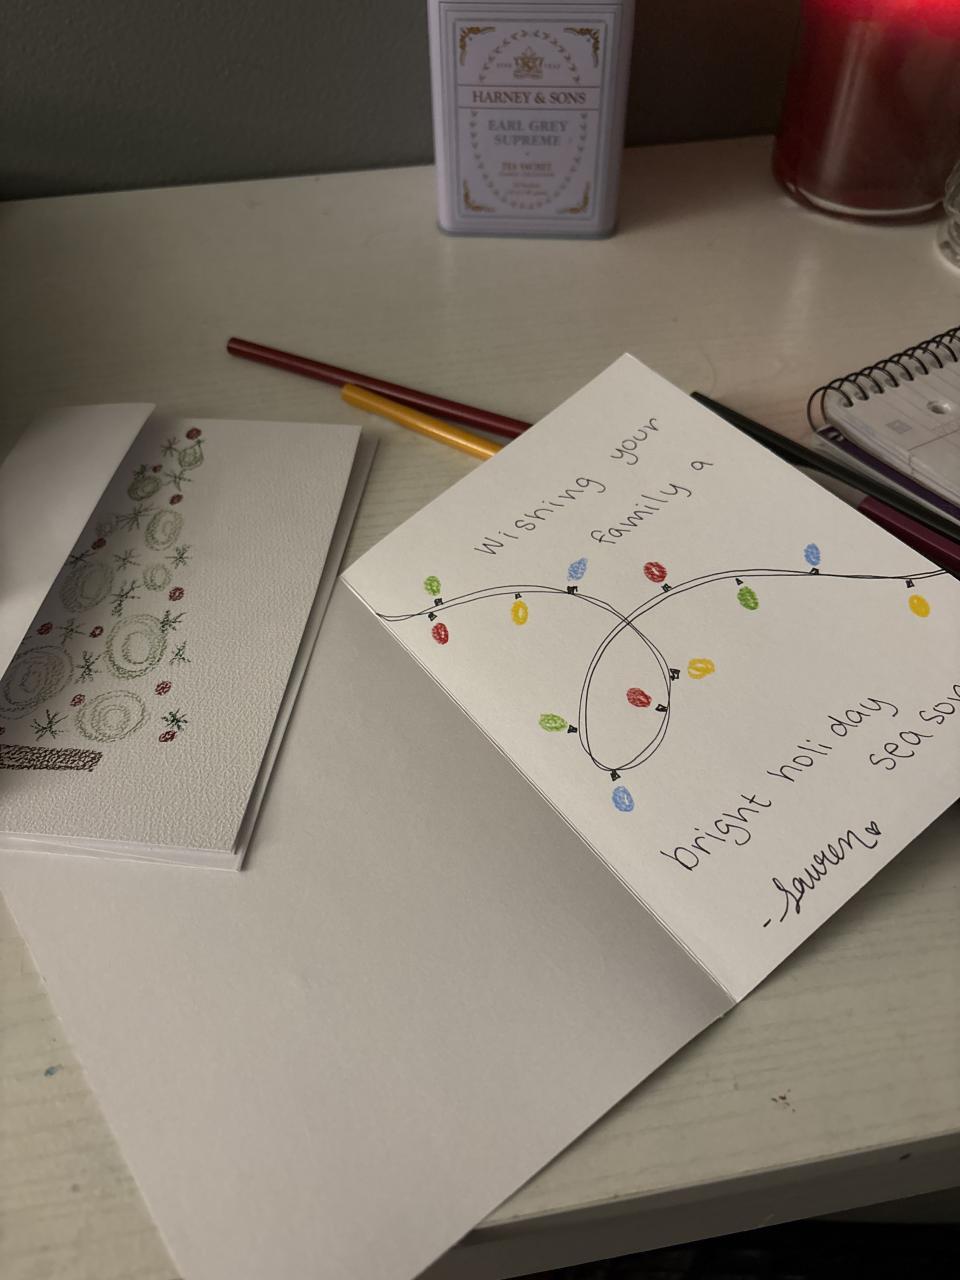 HARNEY & SONS
EARL GREY
SUPREME
TEA SACHET
Wishing your
family a
bright holiday
season
-Lauren